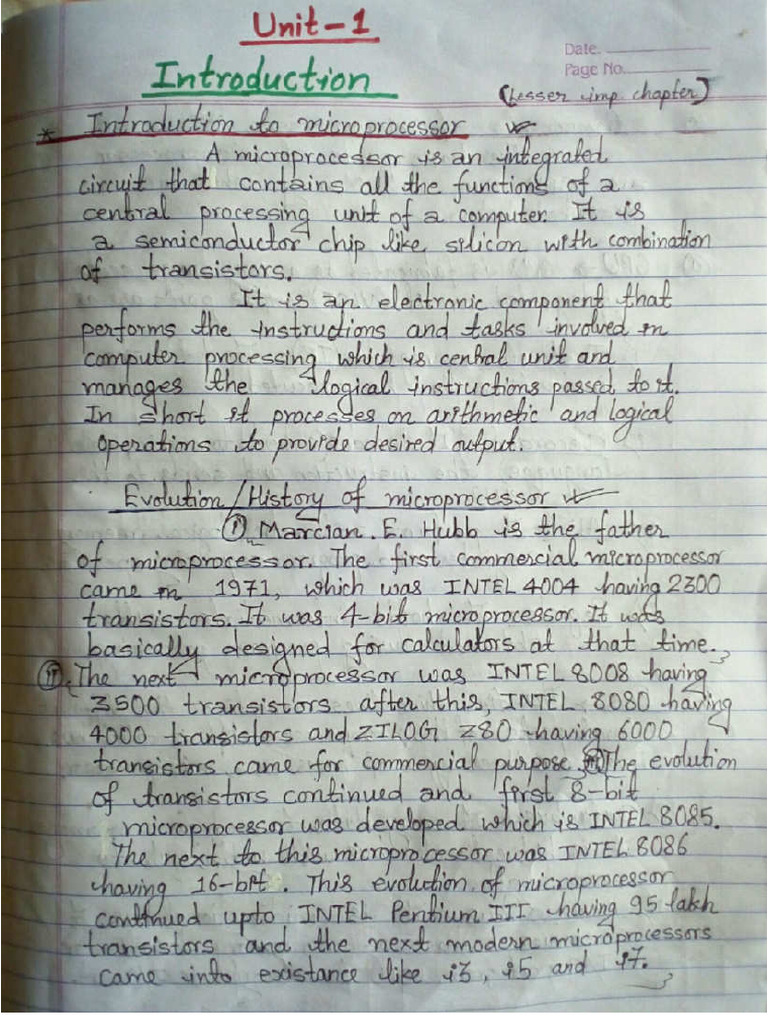 Unit-1
Date.
Introduction
Page No.
(Lesser imp. chapter)
* Introduction to microprocessor
A microprocessor is an integrated
circuit that contains all the functions of a
central processing unit of a computer. It is
a semiconductor chip like silicon with combination
of transistors.
It is an electronic component that
performs the instructions and tasks involved in
computer processing which is central unit and
manages the logical instructions passed to it.
In short it processes on arithmetic and logical
operations to provide desired output.
Evolution/History of microprocessor
(i) Marcian. E. Hubb is the father
of microprocessor. The first commercial microprocessor
came in 1971, which was INTEL 4004 having 2300
transistors. It was 4-bit microprocessor. It was
basically designed for calculators at that time.
(ii) The next microprocessor was INTEL 8008 having
3500 transistors after this, INTEL 8080 having
4000 transistors and ZILOG Z80 having 6000
transistors came for commercial purpose. (iii) The evolution
of transistors continued and first 8-bit
microprocessor was developed which is INTEL 8085.
The next to this microprocessor was INTEL 8086
having 16-bit. This evolution of microprocessor
continued upto INTEL Pentium III having 95 lakh
transistors and the next modern microprocessors
came into existance like i3, i5 and i7.